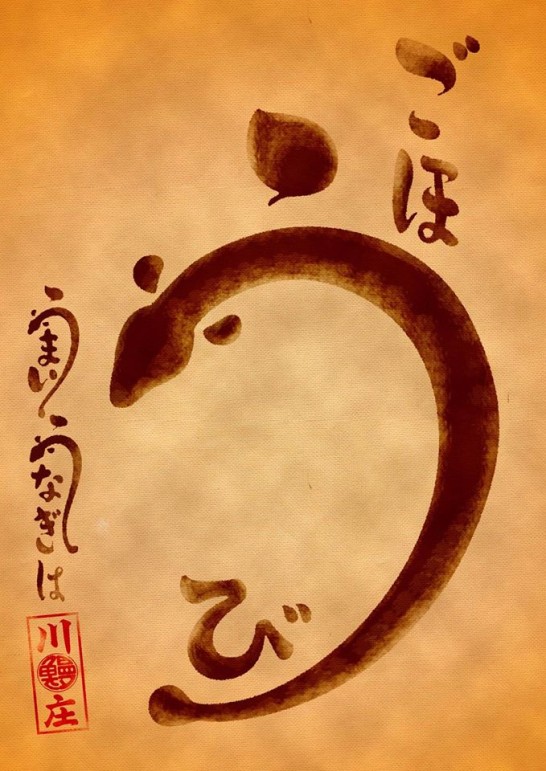 ごほうび
うまいうなぎは
川鰻庄